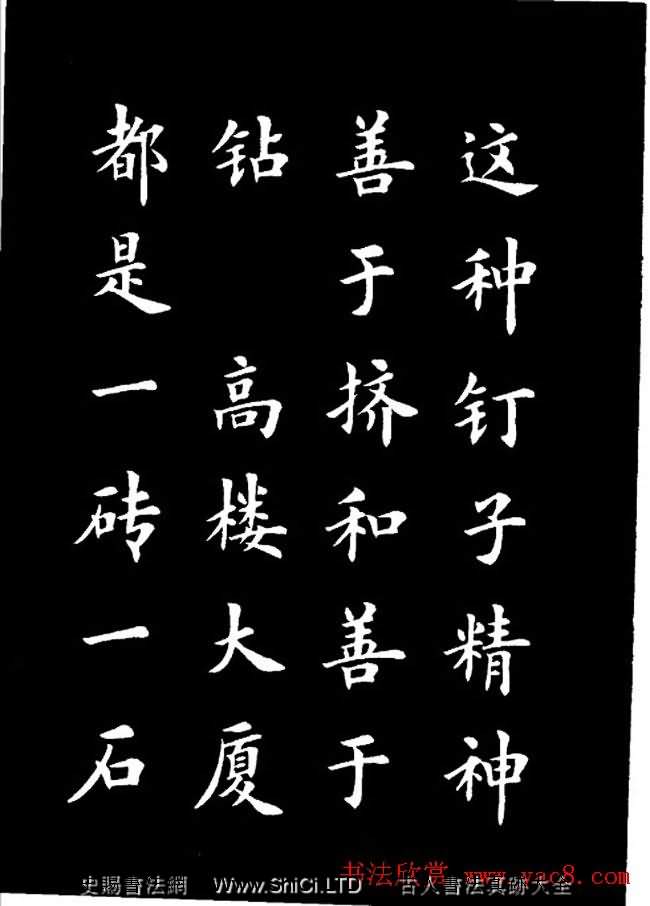 这种钉子精神
善于挤和善于
钻 高楼大厦
都是一砖一石
书法欣赏 www.yac8.com
史賜書法網 Www.ShiCi.LTD 古人書法真跡大全